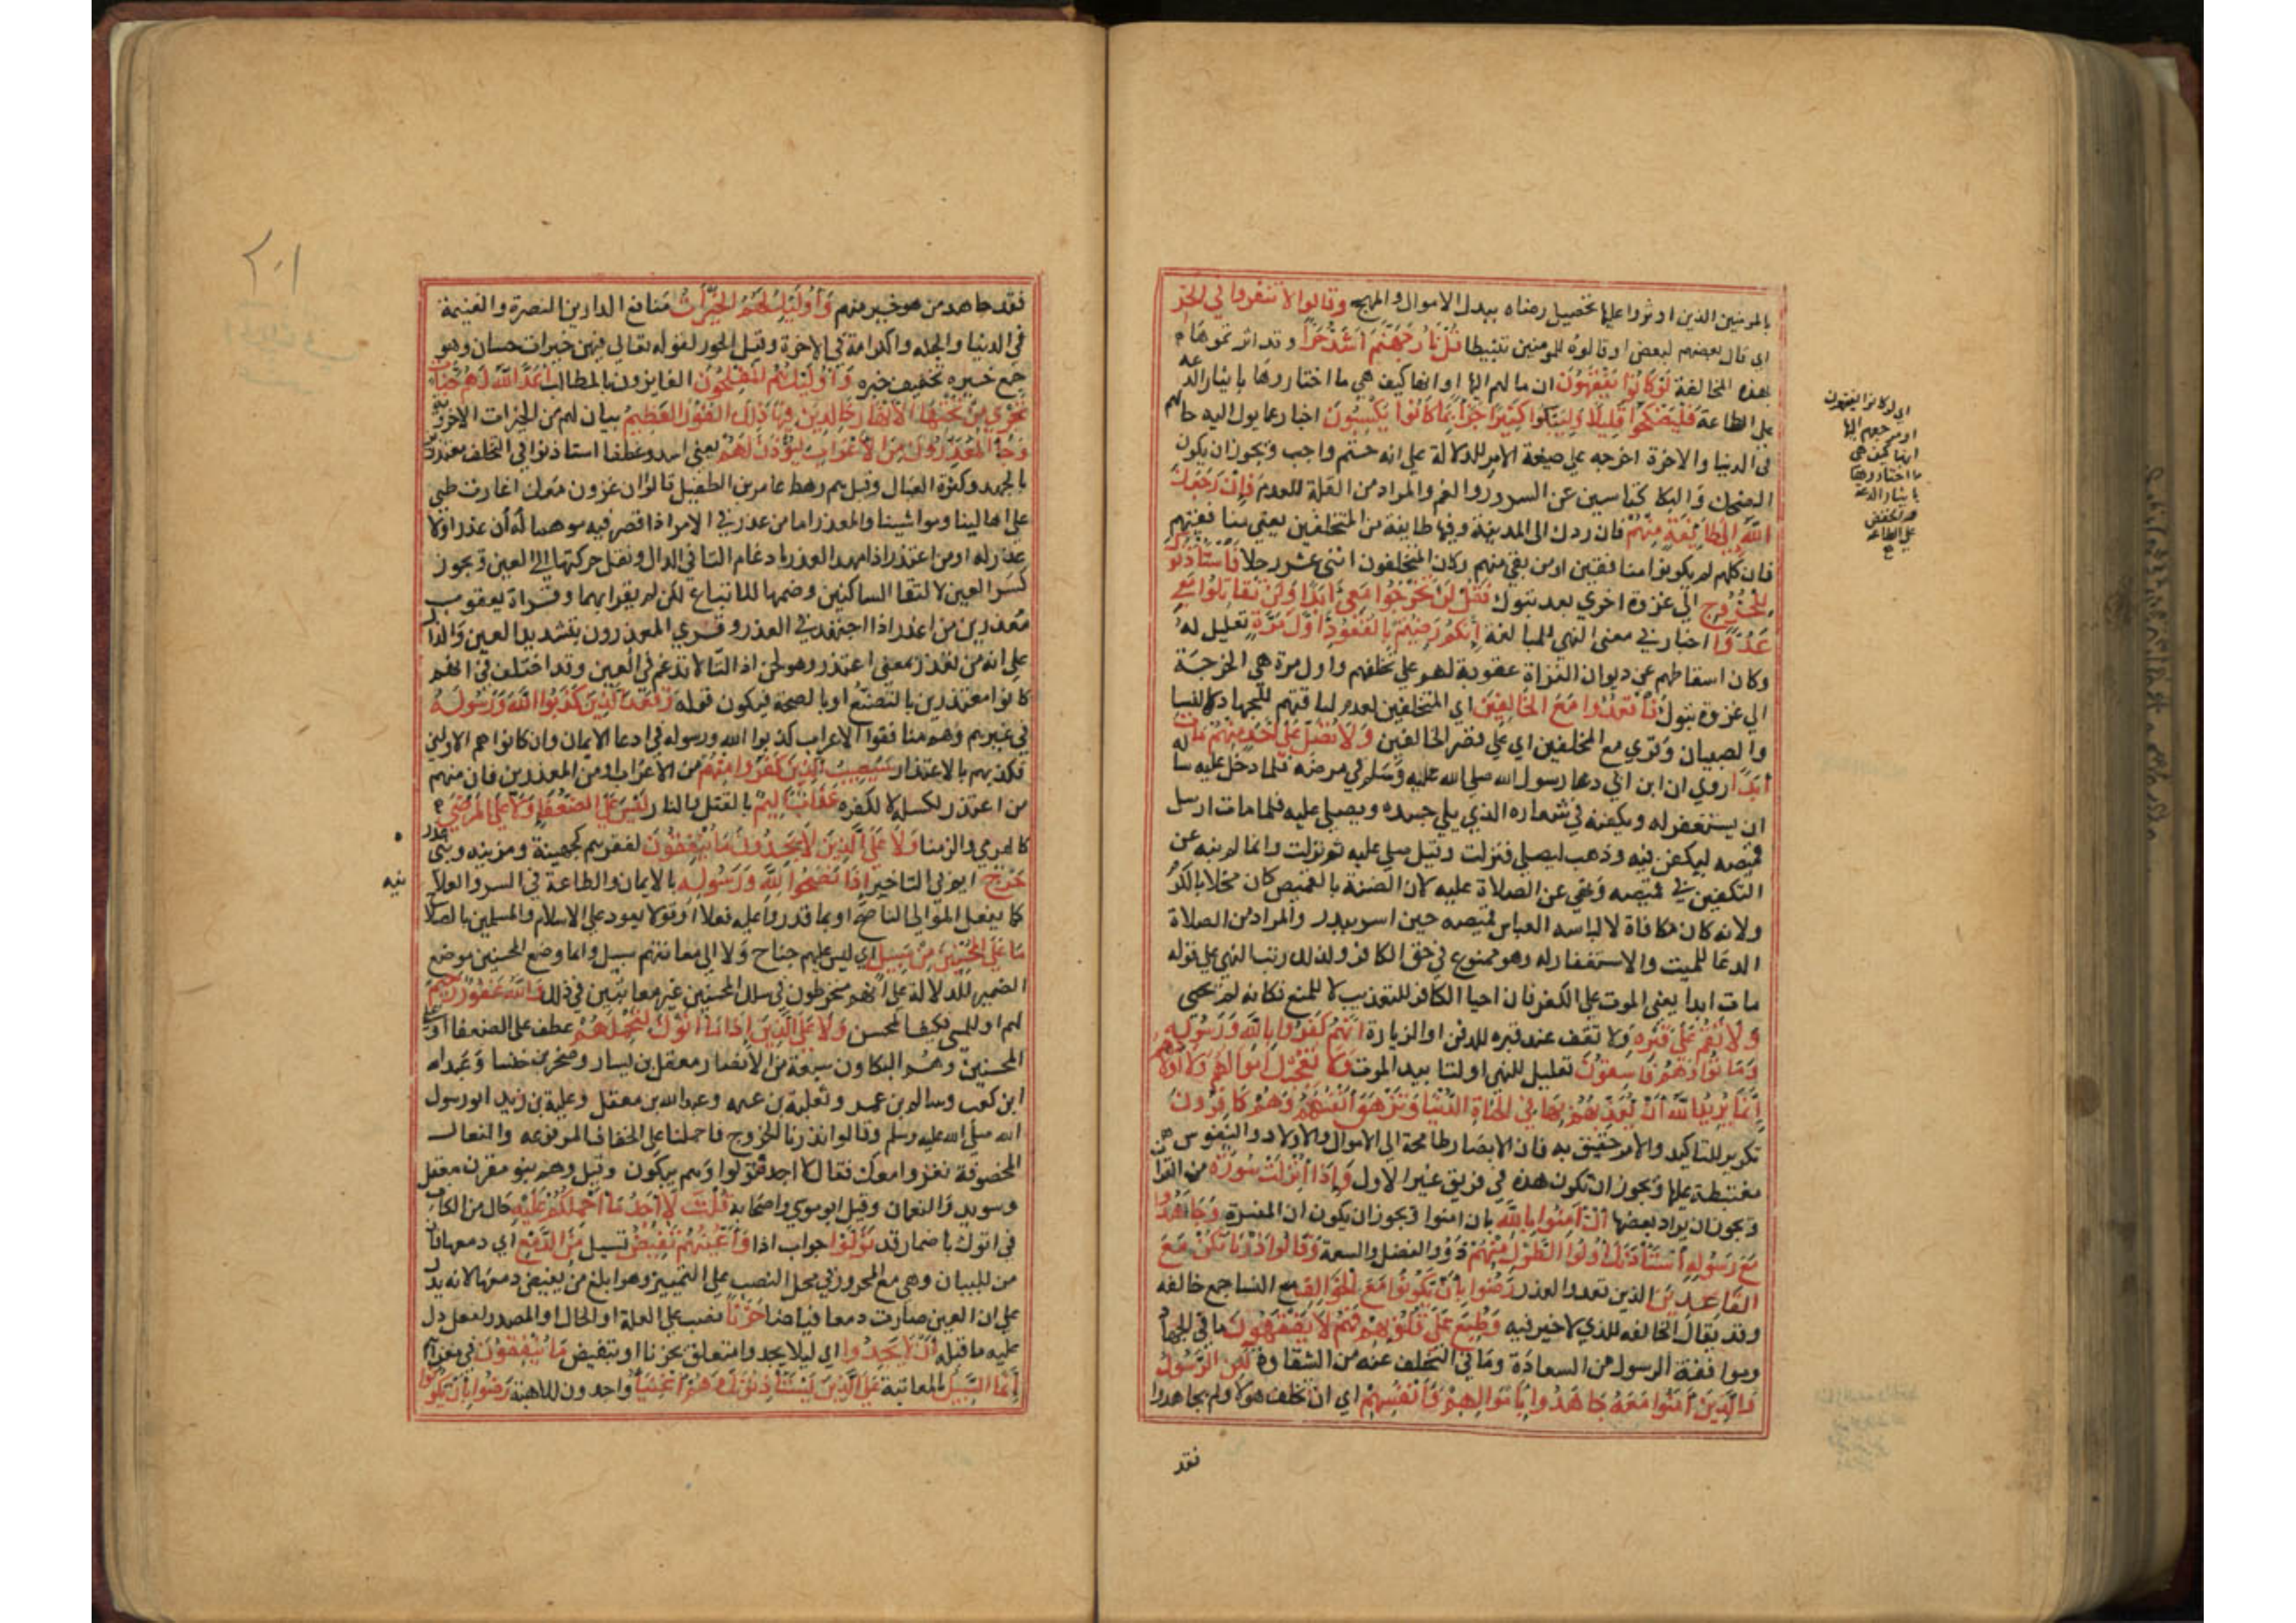 بالمومنين الذين اوثروا عليها تحصيل رضاه ببدل الاموال والمهج وقالوا لا تنفروا في الحر
اي قال بعضهم لبعض او قالوه للمومنين تثبيطا قُلْ نَارُ جَهَنَّمَ اَشَدُّ حَرًّا وقد اثرتموها
بهذه المخالفة لَوْ كَانُوا يَفْقَهُونَ ان مالهم اليها او انها كيف هي ما اختاروها بايثار الدعه
على الطاعة فَلْيَضْحَكُوا قَلِيلًا وَلْيَبْكُوا كَثِيرًا جَزَاءً بِمَا كَانُوا يَكْسِبُونَ اخبار عما يول اليه حالهم
في الدنيا والاخرة اخرجه على صيغة الامر للدلالة على انه حتم واجب ويجوز ان يكون
الضحك والبكا كنايتين عن السرور والغم والمراد من القلة العدم فَإِنْ رَجَعَكَ
اللَّهُ إِلَى طَائِفَةٍ مِنْهُمْ فان ردك الى المدينة وفيها طايفة من المتخلفين يعني منافقيهم
فان كلهم لم يكونوا منافقين او من بقي منهم وكان المتخلفون اثنى عشر رجلا فَاسْتَأْذَنُوكَ
لِلْخُرُوجِ الى غزوة اخري بعد تبوك فَقُلْ لَنْ تَخْرُجُوا مَعِيَ أَبَدًا وَلَنْ تُقَاتِلُوا مَعِيَ
عَدُوًّا اخبار في معنى النهي للمبالغة إِنَّكُمْ رَضِيتُمْ بِالْقُعُودِ أَوَّلَ مَرَّةٍ تعليل له
وكان اسقاطهم عن ديوان الغزاة عقوبة لهم على تخلفهم واول مرة هي الخرجة
الى غزوة تبوك فَاقْعُدُوا مَعَ الْخَالِفِينَ اي المتخلفين لعدم لياقتهم للجهاد كالنسا
والصبيان وقري مع الخلفين اي على قصر الخالفين وَلَا تُصَلِّ عَلَى أَحَدٍ مِنْهُمْ مَاتَ
أَبَدًا روي ان ابن ابي دعا رسول الله صلى الله عليه وسلم في مرضه فلما دخل عليه ساله
ان يستغفر له ويكفنه في شعاره الذي يلي جسده ويصلي عليه فلما مات ارسل
قميصه ليكفن فيه وذهب ليصلي فنزلت وقيل صلى عليه ثم نزلت وانما لم ينه عن
التكفين في قميصه ونهي عن الصلاة عليه لان الضنة بالقميص كان مخلا بالكرم
ولانه كان مكافاة لالباسه العباس قميصه حين اسر ببدر والمراد من الصلاة
الدعا للميت والاستغفار له وهو ممنوع في حق الكافر ولذلك رتب النهي على قوله
مات ابدا يعني الموت على الكفر فان احيا الكافر للتعذيب لا للتمتع فكانه لم يحيى
وَلَا تَقُمْ عَلَى قَبْرِهِ ولا تقف عند قبره للدفن او الزيارة إِنَّهُمْ كَفَرُوا بِاللَّهِ وَرَسُولِهِ
وَمَاتُوا وَهُمْ فَاسِقُونَ تعليل للنهي او لتابيد الموت وَلَا تُعْجِبْكَ أَمْوَالُهُمْ وَأَوْلَادُهُمْ
إِنَّمَا يُرِيدُ اللَّهُ أَنْ يُعَذِّبَهُمْ بِهَا فِي الْحَيَاةِ الدُّنْيَا وَتَزْهَقَ أَنْفُسُهُمْ وَهُمْ كَافِرُونَ
تكرير للتاكيد والامر حقيق به فان الابصار طامحة الى الاموال والاولاد والنفوس
مغتبطة عليها ويجوز ان تكون هذه في فريق غير الاول وَإِذَا أُنْزِلَتْ سُورَةٌ من القران
ويجوز ان يراد بعضها أَنْ آمِنُوا بِاللَّهِ بان امنوا ويجوز ان يكون ان المفسرة وَجَاهِدُوا
مَعَ رَسُولِهِ اسْتَأْذَنَكَ أُولُوا الطَّوْلِ مِنْهُمْ ذوو الفضل والسعة وَقَالُوا ذَرْنَا نَكُنْ مَعَ
الْقَاعِدِينَ الذين قعدوا لعذر رَضُوا بِأَنْ يَكُونُوا مَعَ الْخَوَالِفِ مع النسا جمع خالفه
وقد يقال الخالفه للذي لا خير فيه وَطُبِعَ عَلَى قُلُوبِهِمْ فَهُمْ لَا يَفْقَهُونَ ما في الجهاد
وموافقة الرسول من السعادة وما في التخلف عنه من الشقاوة لَكِنِ الرَّسُولُ
وَالَّذِينَ آمَنُوا مَعَهُ جَاهَدُوا بِأَمْوَالِهِمْ وَأَنْفُسِهِمْ اي ان تخلف هولا ولم يجاهدوا
فقد
اي لو كانوا يفقهون
او مرجعهم اليها
انها كيف هي
ما اختاروها
بايثار الدعة
على الطاعه
٢٠١
فقد جاهد من هو خير منهم وَأُولَئِكَ لَهُمُ الْخَيْرَاتُ منافع الدارين النصرة والغنيمة
في الدنيا والجنة والكرامة في الاخرة وقيل الحور لقوله تعالى فيهن خيرات حسان وهو
جمع خيره تخفيف خيره وَأُولَئِكَ هُمُ الْمُفْلِحُونَ الفايزون بالمطالب أَعَدَّ اللَّهُ لَهُمْ جَنَّاتٍ
تَجْرِي مِنْ تَحْتِهَا الْأَنْهَارُ خَالِدِينَ فِيهَا ذَلِكَ الْفَوْزُ الْعَظِيمُ بيان لهم من الخيرات الاخروية
وَجَاءَ الْمُعَذِّرُونَ مِنَ الْأَعْرَابِ لِيُؤْذَنَ لَهُمْ يعني اسد وغطفا استاذنوا في التخلف معتذرين
بالجهد وكثرة العيال وقيل هم رهط عامر بن الطفيل قالوا ان غزونا معك اغارت طيي
على اهالينا ومواشينا والمعذر اما من عذر في الامر اذا قصر فيه موهما له أن عذرا ولا
عذر له او من اعتذر اذا مهد العذر بادغام التا في الدال ونقل حركتها الى العين ويجوز
كسر العين لالتقا الساكنين وضمها للاتباع لكن لم يقرا بهما وقراة يعقوب
مُعْذِرين من اعذر اذا اجتهد في العذر وقري المعذرون بتشديد العين والذال
على انه من تعذر بمعنى اعتذر وهو لحن اذ التا لا تدغم في العين وقد اختلف في انهم
كانوا معتذرين بالتصنع او بالصحة فيكون قوله وَقَعَدَ الَّذِينَ كَذَبُوا اللَّهَ وَرَسُولَهُ
في غيرهم وهم منافقوا الاعراب كذبوا الله ورسوله في ادعا الايمان وان كانوا هم الاولين
فكذبهم بالاعتذار سَيُصِيبُ الَّذِينَ كَفَرُوا مِنْهُمْ من الاعراب او من المعذرين فان منهم
من اعتذر لكسله لا لكفره عَذَابٌ أَلِيمٌ بالقتل والنار لَيْسَ عَلَى الضُّعَفَاءِ وَلَا عَلَى الْمَرْضَى
كالهرمي والزمنا وَلَا عَلَى الَّذِينَ لَا يَجِدُونَ مَا يُنْفِقُونَ لفقرهم كجهينة ومزينه وبني عذرة
حَرَجٌ اثم في التاخير إِذَا نَصَحُوا لِلَّهِ وَرَسُولِهِ بالايمان والطاعة في السر والعلانيه
كما يفعل الموالي الناصح او بما قدروا عليه فعلا او قولا يعود على الاسلام والمسلمين بالصلاح
مَا عَلَى الْمُحْسِنِينَ مِنْ سَبِيلٍ اي ليس عليهم جناح ولا الى معاتبتهم سبيل وانما وضع المحسنين موضع
الضمير للدلالة على انهم منخرطون في سلك المحسنين غير معاتبين في ذلك وَاللَّهُ غَفُورٌ رَحِيمٌ
لهم او للمسي فكيف المحسن وَلَا عَلَى الَّذِينَ إِذَا مَا أَتَوْكَ لِتَحْمِلَهُمْ عطف على الضعفا او على
المحسنين وهم البكاون سبعة من الانصار معقل بن يسار وصخر بن خنسا وعبدالله
ابن كعب وسالم بن عمير وثعلبة بن عنمه وعبدالله بن معقل وعلبة بن زيد اتوا رسول
الله صلى الله عليه وسلم وقالوا نذرنا الخروج فاحملنا على الخفاف المرقوعه والنعال
المخصوفة نغزوا معك فقال لا اجد فتولوا وهم يبكون وقيل وهم بنو مقرن معقل
وسويد والنعمان وقيل ابو موسي واصحابه قُلْتَ لَا أَجِدُ مَا أَحْمِلُكُمْ عَلَيْهِ حال من الكاف
في اتوك باضمار قد تَوَلَّوْا جواب اذا وَأَعْيُنُهُمْ تَفِيضُ تسيل مِنَ الدَّمْعِ اي دمعها فان
من للبيان وهي مع المجرور في محل النصب على التمييز وهو ابلغ من يفيض دمعها لانه يدل
على ان العين صارت دمعا فياضا حَزَنًا نصب على العلة او الحال او المصدر لفعل دل
عليه ما قبله أَلَّا يَجِدُوا اي ليلا يجدوا متعلق بحزنا او بتفيض مَا يُنْفِقُونَ في مغزاهم
إِنَّمَا السَّبِيلُ بالمعاتبة عَلَى الَّذِينَ يَسْتَأْذِنُونَكَ وَهُمْ أَغْنِيَاءُ واجدون للاهبة رَضُوا بِأَنْ يَكُونُوا